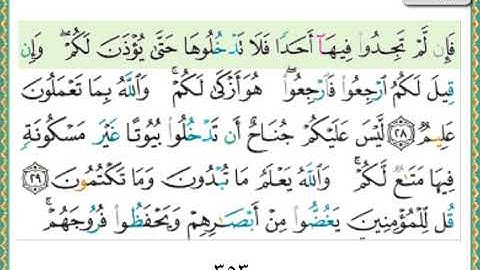 فَإِن لَّمْ تَجِدُوا۟ فِيهَآ أَحَدًا فَلَا تَدْخُلُوهَا حَتَّىٰ يُؤْذَنَ لَكُمْ ۖ وَإِن
قِيلَ لَكُمُ ٱرْجِعُوا۟ فَٱرْجِعُوا۟ ۖ هُوَ أَزْكَىٰ لَكُمْ ۚ وَٱللَّهُ بِمَا تَعْمَلُونَ
عَلِيمٌ ﴿٢٨﴾ لَّيْسَ عَلَيْكُمْ جُنَاحٌ أَن تَدْخُلُوا۟ بُيُوتًا غَيْرَ مَسْكُونَةٍ
فِيهَا مَتَـٰعٌ لَّكُمْ ۚ وَٱللَّهُ يَعْلَمُ مَا تُبْدُونَ وَمَا تَكْتُمُونَ ﴿٢٩﴾
قُل لِّلْمُؤْمِنِينَ يَغُضُّوا۟ مِنْ أَبْصَـٰرِهِمْ وَيَحْفَظُوا۟ فُرُوجَهُمْ ۚ
٣٥٣